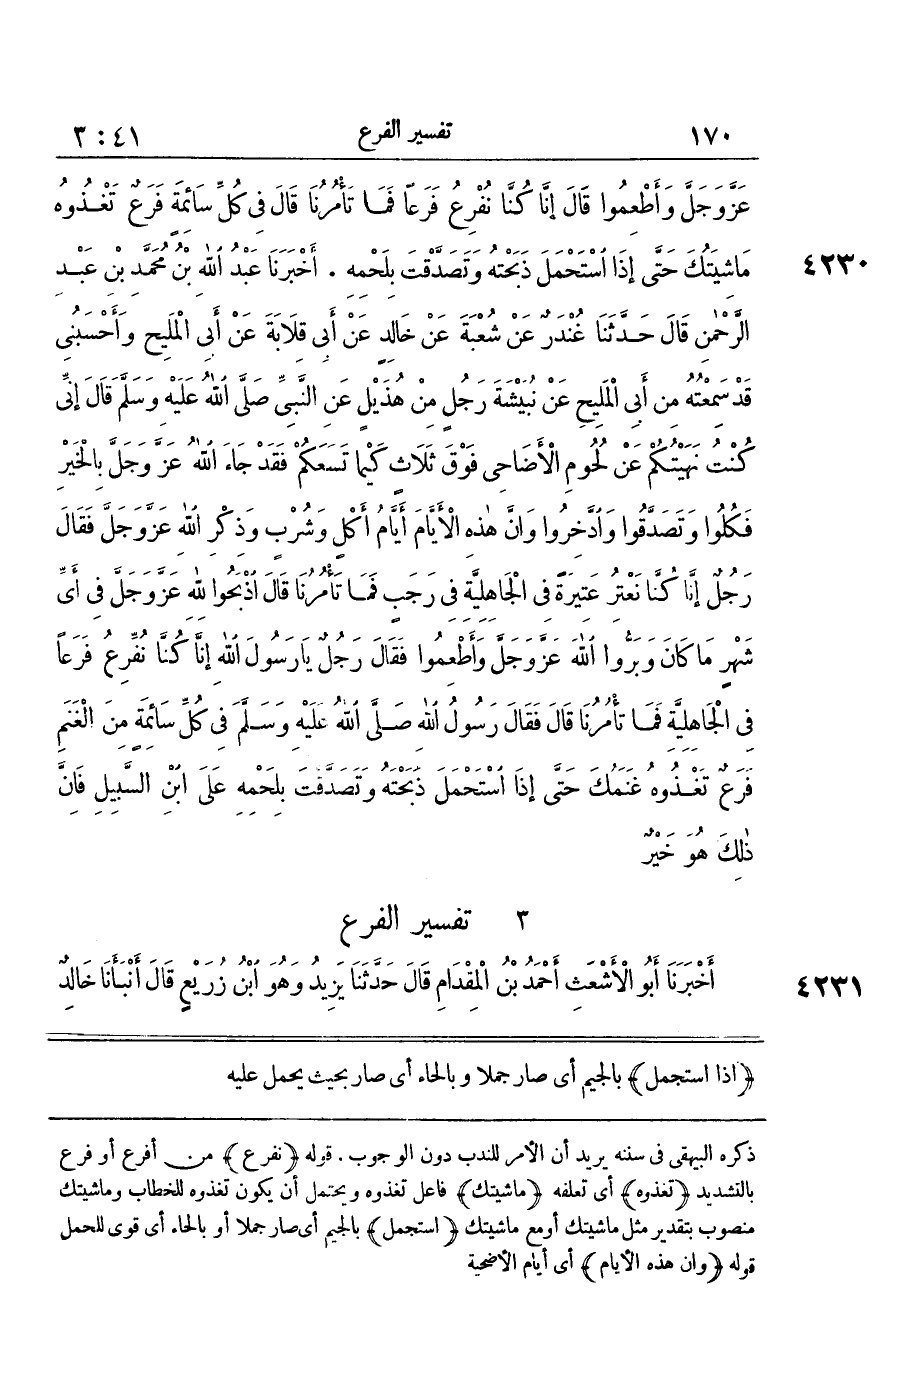 ١٧٠ تفسير الفرع ٤١ : ٣
عَزَّ وَجَلَّ وَأَطْعِمُوا قَالَ إِنَّا كُنَّا نُفْرِعُ فَرَعًا فَمَا تَأْمُرُنَا قَالَ فِى كُلِّ سَائِمَةٍ فَرَعٌ تَغْذُوهُ
مَاشِيَتُكَ حَتَّى إِذَا اُسْتَحْمَلَ ذَبَحْتَهُ وَتَصَدَّقْتَ بِلَحْمِهِ . أَخْبَرَنَا عَبْدُ اللهِ بْنُ مُحَمَّدِ بْنِ عَبْدِ ٤٢٣٠
الرَّحْمٰنِ قَالَ حَدَّثَنَا غُنْدَرٌ عَنْ شُعْبَةَ عَنْ خَالِدٍ عَنْ أَبِى قِلَابَةَ عَنْ أَبِى الْمَلِيحِ وَأَحْسَبُنِى
قَدْ سَمِعْتُهُ مِنْ أَبِى الْمَلِيحِ عَنْ نُبَيْشَةَ رَجُلٍ مِنْ هُذَيْلٍ عَنِ النَّبِىِّ صَلَّى اللهُ عَلَيْهِ وَسَلَّمَ قَالَ إِنِّى
كُنْتُ نَهَيْتُكُمْ عَنْ لُحُومِ الْأَضَاحِى فَوْقَ ثَلَاثٍ كَيْمَا تَسَعَكُمْ فَقَدْ جَاءَ اللهُ عَزَّ وَجَلَّ بِالْخَيْرِ
فَكُلُوا وَتَصَدَّقُوا وَادَّخِرُوا وَإِنَّ هٰذِهِ الْأَيَّامَ أَيَّامُ أَكْلٍ وَشُرْبٍ وَذِكْرِ اللهِ عَزَّ وَجَلَّ فَقَالَ
رَجُلٌ إِنَّا كُنَّا نَعْتِرُ عَتِيرَةً فِى الْجَاهِلِيَّةِ فِى رَجَبٍ فَمَا تَأْمُرُنَا قَالَ اُذْبَحُوا لِلهِ عَزَّ وَجَلَّ فِى أَىِّ
شَهْرٍ مَا كَانَ وَبَرُّوا اللهَ عَزَّ وَجَلَّ وَأَطْعِمُوا فَقَالَ رَجُلٌ يَا رَسُولَ اللهِ إِنَّا كُنَّا نُفَرِّعُ فَرَعًا
فِى الْجَاهِلِيَّةِ فَمَا تَأْمُرُنَا قَالَ فَقَالَ رَسُولُ اللهِ صَلَّى اللهُ عَلَيْهِ وَسَلَّمَ فِى كُلِّ سَائِمَةٍ مِنَ الْغَنَمِ
فَرَعٌ تَغْذُوهُ غَنَمُكَ حَتَّى إِذَا اُسْتَحْمَلَ ذَبَحْتَهُ وَتَصَدَّقْتَ بِلَحْمِهِ عَلَى ابْنِ السَّبِيلِ فَإِنَّ
ذٰلِكَ هُوَ خَيْرٌ
٣ تفسير الفرع
أَخْبَرَنَا أَبُو الْأَشْعَثِ أَحْمَدُ بْنُ الْمِقْدَامِ قَالَ حَدَّثَنَا يَزِيدُ وَهُوَ ابْنُ زُرَيْعٍ قَالَ أَنْبَأَنَا خَالِدٌ ٤٢٣١
﴿اذا استجمل﴾ بالجيم أى صار جملا و بالحاء أى صار بحيث يحمل عليه
ذكره البيهقى فى سننه يريد أن الأمر للندب دون الوجوب . قوله ﴿نفرع﴾ من أفرع أو فرع
بالتشديد ﴿تغذوه﴾ أى تعلفه ﴿ماشيتك﴾ فاعل تغذوه ويحتمل أن يكون تغذوه للخطاب وماشيتك
منصوب بتقدير مثل ماشيتك أو مع ماشيتك ﴿استجمل﴾ بالجيم أى صار جملا أو بالحاء أى قوى للحمل
قوله ﴿وان هذه الأيام﴾ أى أيام الأضحية